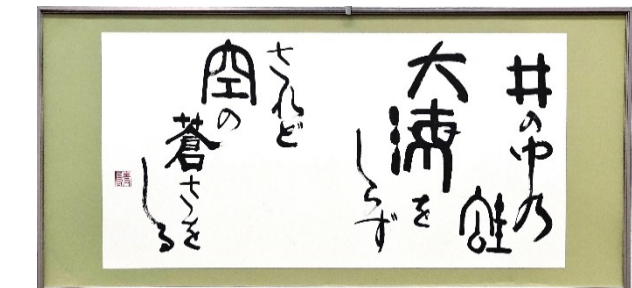 井の中乃
蛙
大海を
しらず
されど
空の
蒼さを
しる